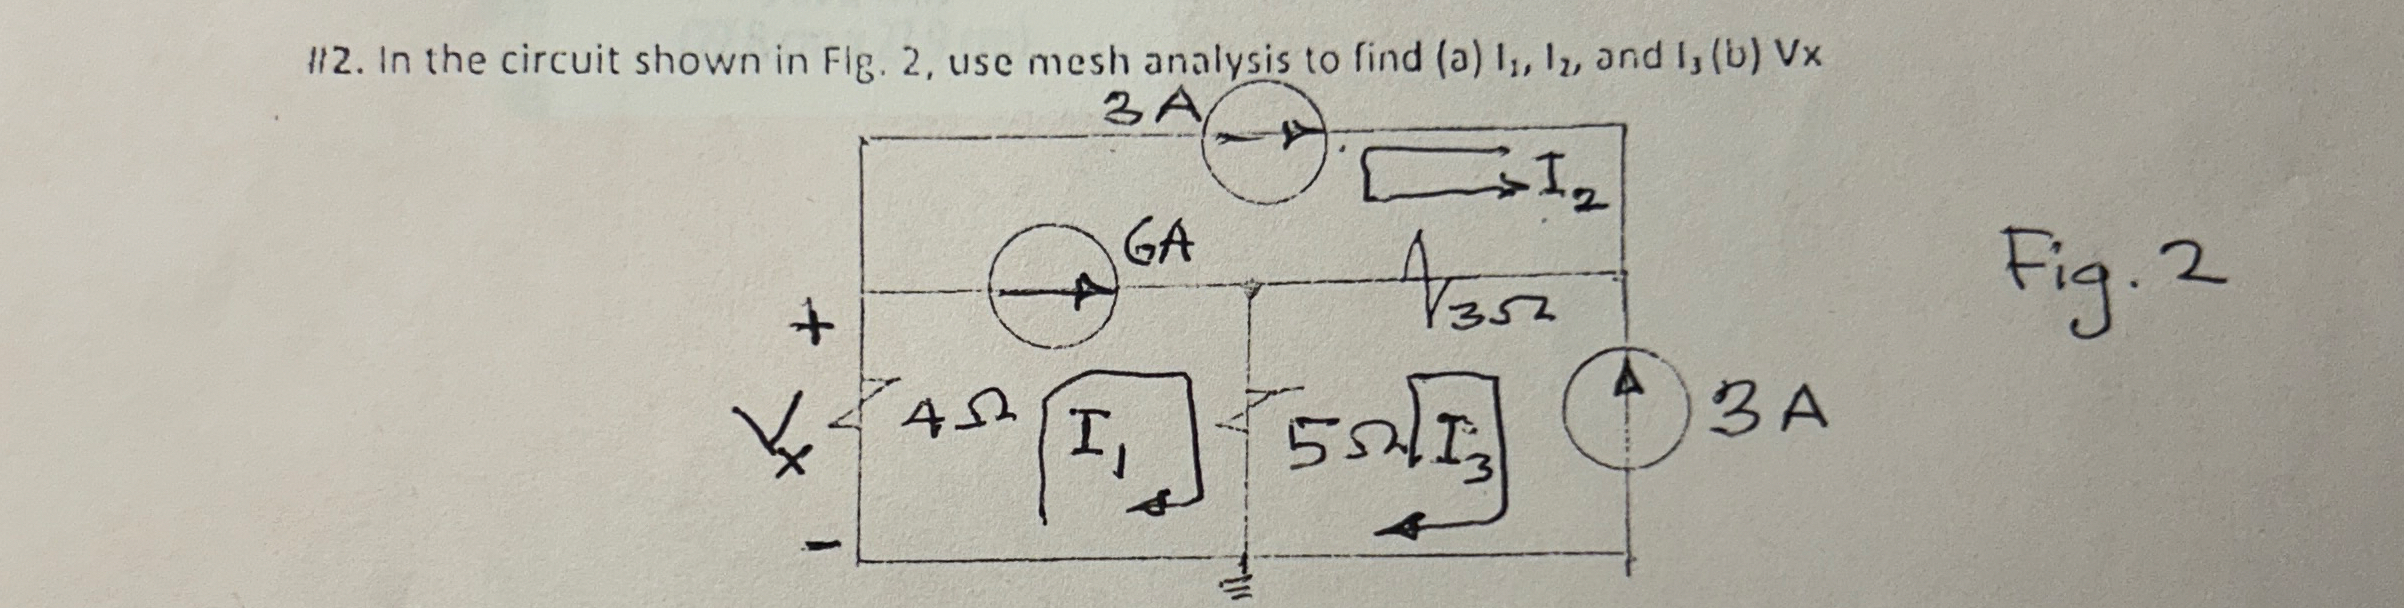 #2. In the circuit shown in Fig. 2, use mesh analysis to find (a) I₁, I₂, and I₃ (b) Vx
3 A
I₂
6A
Fig. 2
3Ω
+
Vx
4Ω
I₁
5Ω
I₃
3 A
-